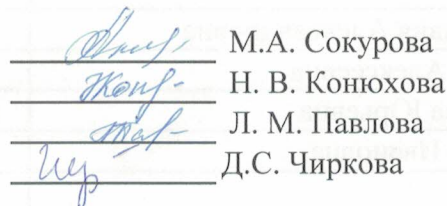 М.А. Сокурова
Н. В. Конюхова
Л. М. Павлова
Д.С. Чиркова